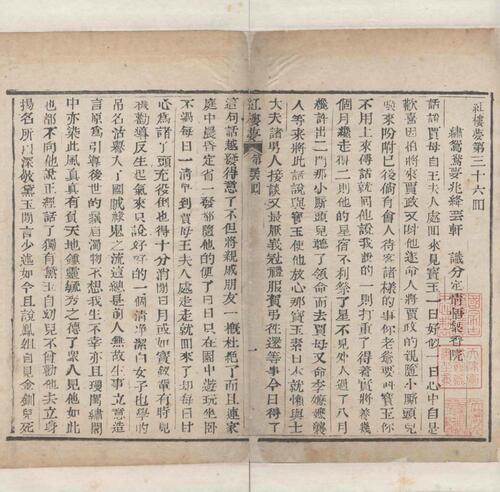 紅樓夢第三十六回
繡鴛鴦夢兆絳芸軒 識分定情悟梨香院
話說賈母自王夫人處回來見寶玉一日好似一日心中自是
歡喜因怕將來賈政又叫他遂命人將賈政的親隨小厮頭兒
喚來吩咐已後倘有會人待客諸樣的事你老爺要叫寶玉你
不用上來傳話就回他說我說的一則打重了得着實將養幾
個月纔走得二則他的星宿不利祭了星不見外人過了八月
纔許出二門那小厮頭兒聽了領命而去賈母又命李嬤嬤襲
人等來將此話說與寶玉使他放心那寶玉素日本就懶與士
大夫諸男人接談又最厭峩冠禮服賀弔往還等事今日得了
紅樓夢 第卅六回 一
這句話越發得意了不但將親戚朋友一概杜絕了而且連家
庭中晨昏定省一發都隨他的便了日日只在園中遊玩坐卧
不過每日一清早到賈母王夫人處走走就回來了却每日甘
心爲諸丫頭充役倒也得十分消閒日月或如寶釵輩有時見
機勸導反生起氣來只說好好的一個清淨潔白女子也學的
吊名沽譽入了國賊祿鬼之流這總是前人無故生事立意造
言原爲引導後世的鬚眉濁物不想我生不幸亦且瓊閨繡閣
中亦染此風真真有負天地鍾靈毓秀之德了衆人見他如此
也都不向他說正經話了獨有黛玉自幼兒不曾勸他去立身
揚名所以深敬黛玉閒言少述如今且說鳳姐自見金釧兒死